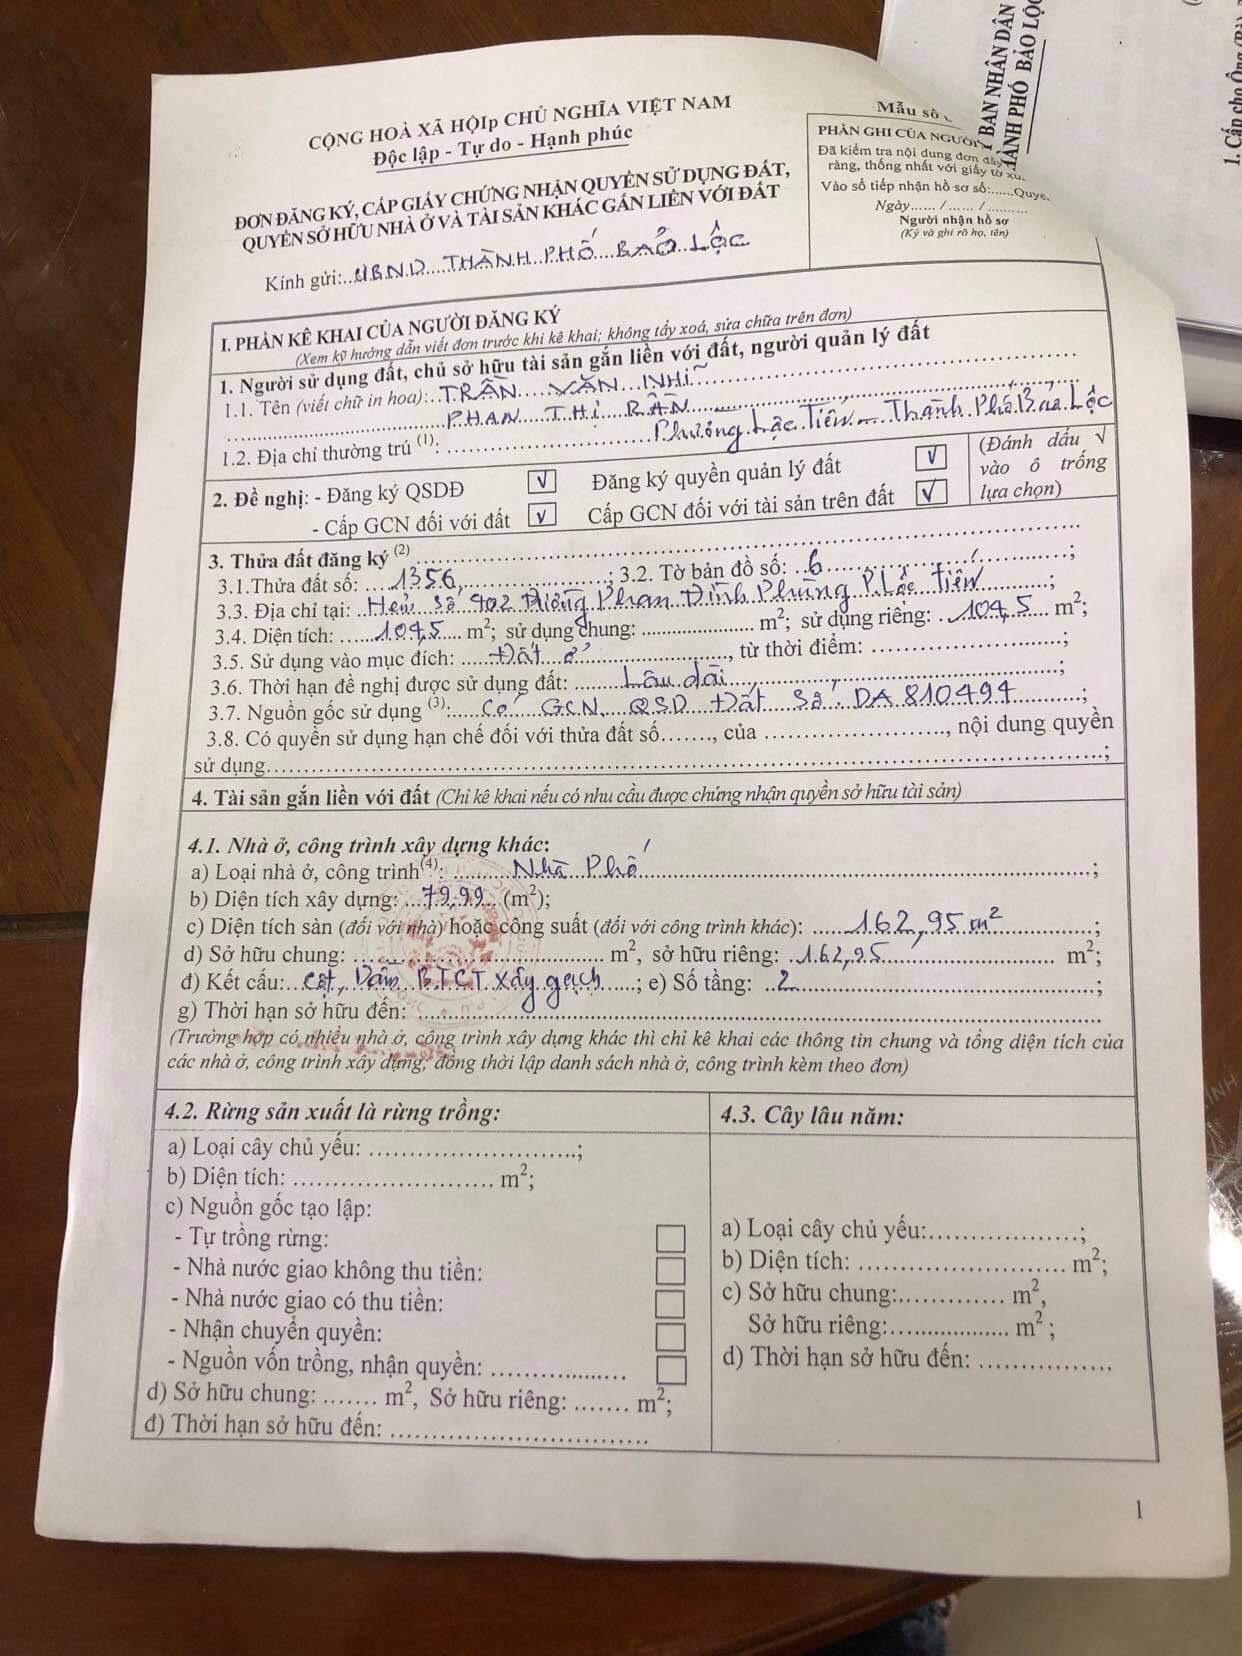 CỘNG HOÀ XÃ HỘIp CHỦ NGHĨA VIỆT NAM
Độc lập - Tự do - Hạnh phúc
ĐƠN ĐĂNG KÝ, CẤP GIẤY CHỨNG NHẬN QUYỀN SỬ DỤNG ĐẤT,
QUYỀN SỞ HỮU NHÀ Ở VÀ TÀI SẢN KHÁC GẮN LIỀN VỚI ĐẤT
Kính gửi:..UBND THÀNH PHỐ BẢO LỘC
Mẫu số
PHẦN GHI CỦA NGƯỜI
Đã kiểm tra nội dung đơn đầy
ràng, thống nhất với giấy tờ
Vào sổ tiếp nhận hồ sơ số:......Quyể
Ngày...... / ...... / .........
Người nhận hồ sơ
(Ký và ghi rõ họ, tên)
BAN NHÂN DÂN
THÀNH PHỐ BẢO LỘC
1. Cấp cho Ông
I. PHẦN KÊ KHAI CỦA NGƯỜI ĐĂNG KÝ
(Xem kỹ hướng dẫn viết đơn trước khi kê khai; không tẩy xoá, sửa chữa trên đơn)
1. Người sử dụng đất, chủ sở hữu tài sản gắn liền với đất, người quản lý đất
1.1. Tên (viết chữ in hoa):..TRẦN VĂN NHĨ
PHAN THỊ RÂN
1.2. Địa chỉ thường trú (1): Phường Lộc Tiên - Thành Phố Bảo Lộc
2. Đề nghị: - Đăng ký QSDĐ √ Đăng ký quyền quản lý đất √ (Đánh dấu √
- Cấp GCN đối với đất √ Cấp GCN đối với tài sản trên đất √ vào ô trống
lựa chọn)
3. Thửa đất đăng ký (2) ;
3.1.Thửa đất số: 1356 ; 3.2. Tờ bản đồ số: 6 ;
3.3. Địa chỉ tại: Hẻm Số 402 Đường Phan Đình Phùng P.Lộc Tiến ;
3.4. Diện tích: 104,5 m²; sử dụng chung: m²; sử dụng riêng: 104,5 m²;
3.5. Sử dụng vào mục đích: Đất ở , từ thời điểm: ;
3.6. Thời hạn đề nghị được sử dụng đất: Lâu dài ;
3.7. Nguồn gốc sử dụng (3): Có GCN QSD Đất Số: DA 810494 ;
3.8. Có quyền sử dụng hạn chế đối với thửa đất số......., của ......................, nội dung quyền
sử dụng ;
4. Tài sản gắn liền với đất (Chỉ kê khai nếu có nhu cầu được chứng nhận quyền sở hữu tài sản)
4.1. Nhà ở, công trình xây dựng khác:
a) Loại nhà ở, công trình(4): Nhà Phố ;
b) Diện tích xây dựng: 79,99 (m²);
c) Diện tích sàn (đối với nhà) hoặc công suất (đối với công trình khác): 162,95 m² ;
d) Sở hữu chung: m², sở hữu riêng: 162,95 m²;
đ) Kết cấu: Cột, Dầm BTCT xây gạch ; e) Số tầng: 2 ;
g) Thời hạn sở hữu đến:
(Trường hợp có nhiều nhà ở, công trình xây dựng khác thì chỉ kê khai các thông tin chung và tổng diện tích của
các nhà ở, công trình xây dựng; đồng thời lập danh sách nhà ở, công trình kèm theo đơn)
4.2. Rừng sản xuất là rừng trồng:
a) Loại cây chủ yếu: ............................;
b) Diện tích: ........................... m²;
c) Nguồn gốc tạo lập:
- Tự trồng rừng:
- Nhà nước giao không thu tiền:
- Nhà nước giao có thu tiền:
- Nhận chuyển quyền:
- Nguồn vốn trồng, nhận quyền: ..................
d) Sở hữu chung: ....... m², Sở hữu riêng: ....... m²;
đ) Thời hạn sở hữu đến: ..................................
4.3. Cây lâu năm:
a) Loại cây chủ yếu:....................;
b) Diện tích: ........................... m²;
c) Sở hữu chung:............. m²,
Sở hữu riêng:................. m² ;
d) Thời hạn sở hữu đến: .................
1